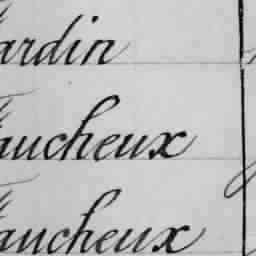 ardin
aucheux
aucheux